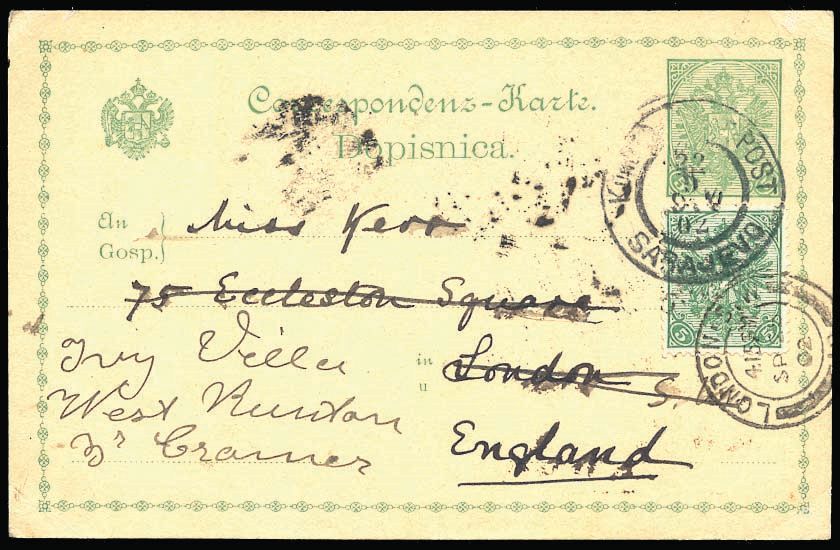 Correspondenz-Karte.
Dopisnica.
An
Gosp.
Miss Kerr
75 Eccleston Square
in
u
London S.W.
England
Ivy Villa
West Runton
Nr Cromer
POST
SARAJEVO
02
5
LONDON
4.15 PM
SP
02